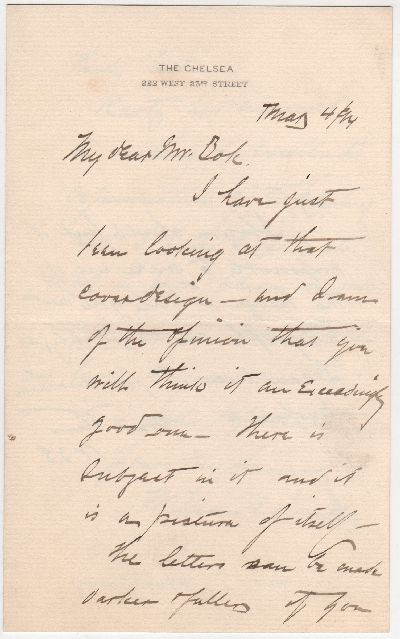 THE CHELSEA
222 WEST 23RD STREET
May 4th
My dear Mr. Bok.
I have just
been looking at that
cover design – and I am
of the opinion that you
will think it an exceedingly
good one – there is
subject in it and it
is a picture of itself –
the letters can be made
darker & fuller if you